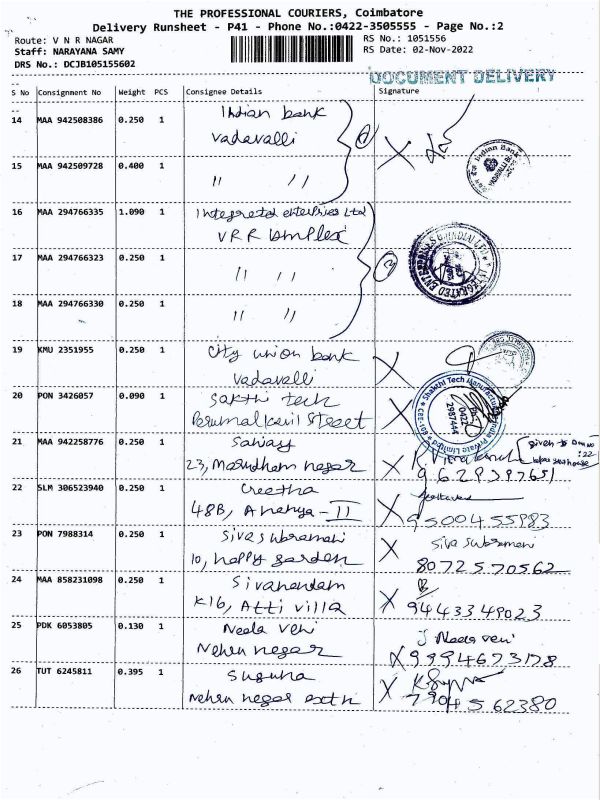 THE PROFESSIONAL COURIERS, Coimbatore
Delivery Runsheet - P41 - Phone No.:0422-3505555 - Page No.:2
Route: V N R NAGAR
RS No.: 1051556
Staff: NARAYANA SAMY
RS Date: 02-Nov-2022
DRS No.: DCJB105155602
DOCUMENT DELIVERY
S No Consignment No Weight PCS Consignee Details Signature
14 MAA 942508386 0.250 1 Indian bank
vadavalli
15 MAA 942509728 0.400 1 " "
16 MAA 294766335 1.090 1 Integrated enterprises Ltd
VRR complex
17 MAA 294766323 0.250 1 " "
18 MAA 294766330 0.250 1 " "
19 KMU 2351955 0.250 1 city union bank
vadavalli
20 PON 3426057 0.090 1 Sakthi tech
Perumal kovil Street
21 MAA 942258776 0.250 1 Sanjay
23, Marudham nagar 9629397651
22 SLM 306523940 0.250 1 Creetha
48B, Ananya - II 9500455983
23 PON 7988314 0.250 1 Siva subramani Siva Subramani
10, happy garden 8072570562
24 MAA 858231098 0.250 1 Sivanandam
K16, Atti villa 9443349023
25 PDK 6053805 0.130 1 Neela veni J Neela veni
Nehru nagar 9994673178
26 TUT 6245811 0.395 1 Suguna
Nehru nagar extn 7904562380